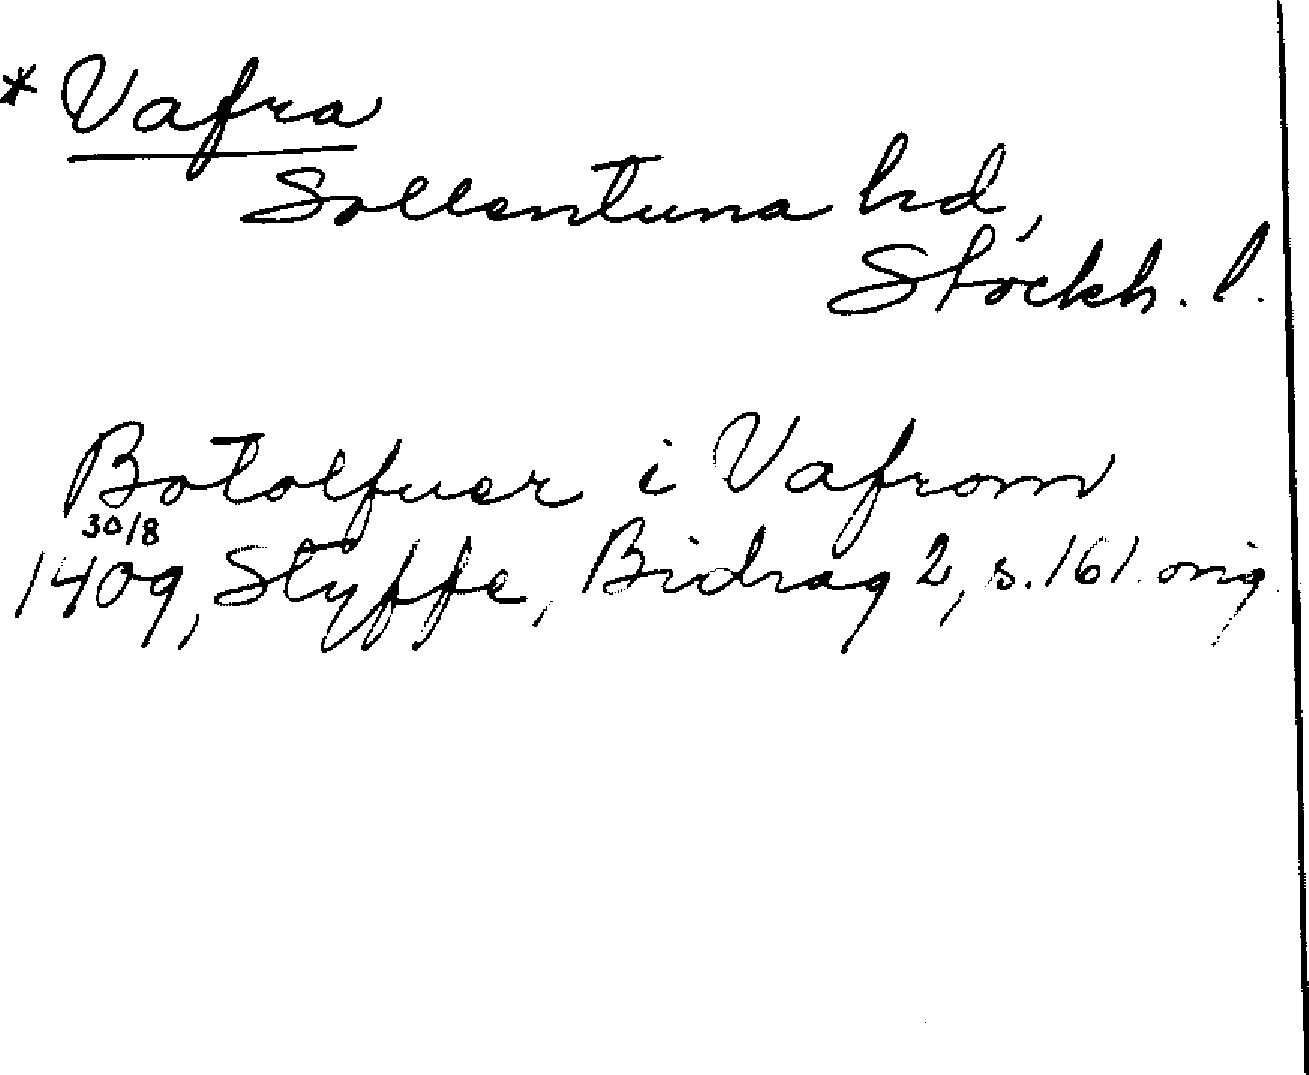 * Vafra
Sollentuna hd,
Stockh. l.
Botolfuer i Vafrom
30/8
1409, Styffe, Bidrag 2, s. 161. orig.